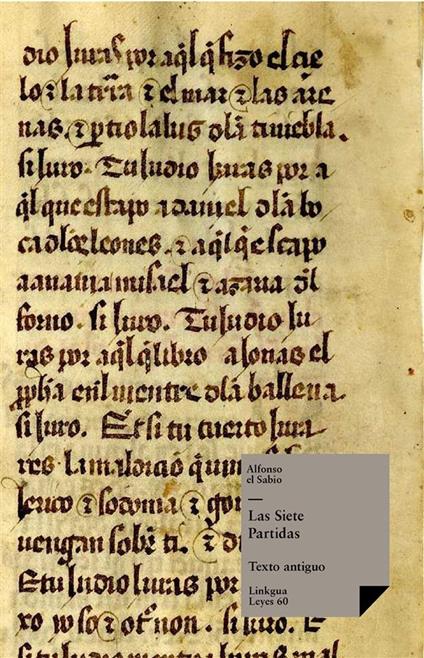 dio juras por aq̃l q̃ fizo el cie
lo ⁊ la tr̃ra ⁊ el mar ⁊ las are
nas. ⁊ ꝑtio la lus dl̃a tiniebla.
si juro. Tu judio juras por a
q̃l que escapo a daniel dl̃a bo
ca dlos leones. ⁊ aq̃l q̃ escapo
a anania misael ⁊ azaria dl̃
forno. si juro. Tu judio ju
ras por aq̃l q̃ libro a Jonas el
ꝓph̃a enl vientre dl̃a ballena.
si juro. Et si tu tuerto jura
res la maldició q̃
⁊ sodoma ⁊
vengan sobr̃ ti. ⁊
E tu Judio juras por
xo yo so ⁊ otr̃ non. si juro.
si tu judio
Alfonso
el Sabio
—
Las Siete
Partidas
Texto antiguo
Linkgua
Leyes 60